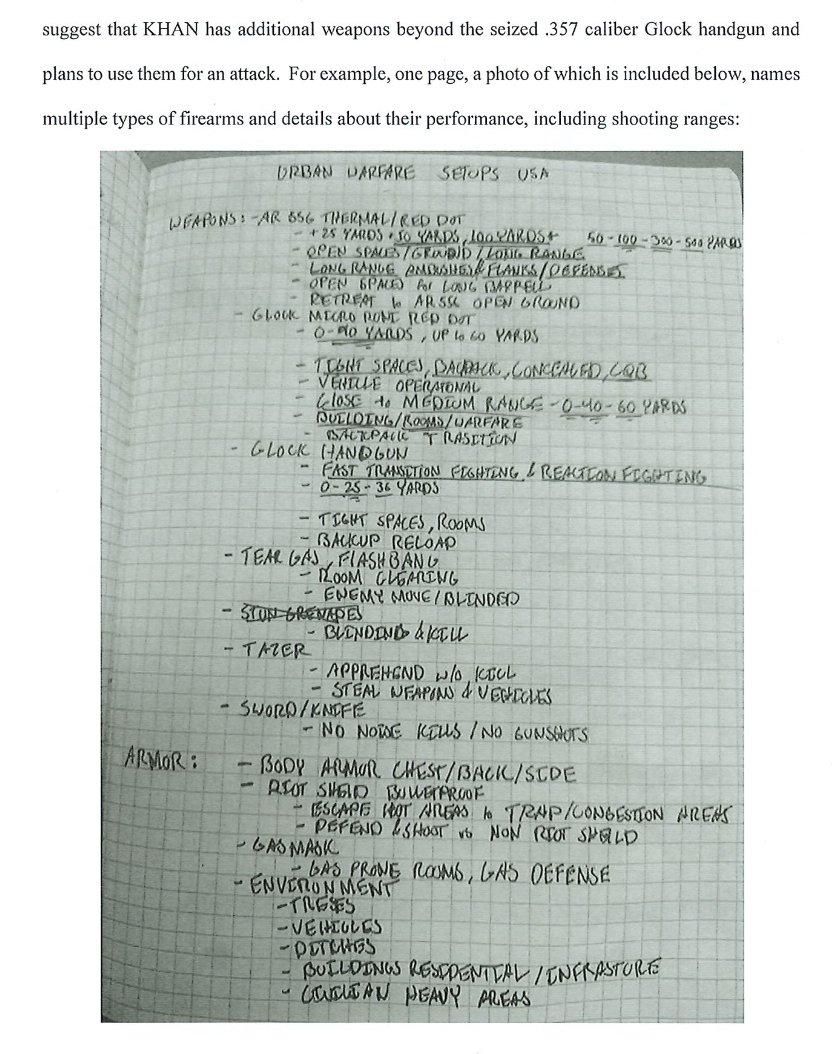 suggest that KHAN has additional weapons beyond the seized .357 caliber Glock handgun and
plans to use them for an attack. For example, one page, a photo of which is included below, names
multiple types of firearms and details about their performance, including shooting ranges:
URBAN WARFARE SETUPS USA
WEAPONS: - AR 556 THERMAL/RED DOT
- +25 YARDS, 50 YARDS, 100 YARDS+ 50-100-300-500 YARDS
- OPEN SPACES/GROUND/LONG RANGE
- LONG RANGE AMBUSHES/FLANKS/DEFENSES
- OPEN SPACES for LONG BARRELL
- RETREAT to AR 556 OPEN GROUND
- GLOCK MICRO RONI RED DOT
- 0-40 YARDS, UP to 60 YARDS
- TIGHT SPACES, BACKPACK, CONCEALED, CQB
- VEHICLE OPERATONAL
- CLOSE to MEDIUM RANGE - 0-40-60 YARDS
- BUILDING/ROOMS/WARFARE
- BACKPACK TRASITION
- GLOCK HANDGUN
- FAST TRANSITION FIGHTING & REACTION FIGHTING
- 0-25-36 YARDS
- TIGHT SPACES, ROOMS
- BACKUP RELOAD
- TEAR GAS, FLASHBANG
- ROOM CLEARING
- ENEMY MOVE/BLINDED
- STUN GRENADES
- BLINDIND & KILL
- TAZER
- APPREHEND w/o KILL
- STEAL WEAPONS & VEHICLES
- SWORD/KNIFE
- NO NOISE KILLS / NO GUNSHOTS
ARMOR: - BODY ARMOR CHEST/BACK/SIDE
- RIOT SHEID BULLETPROOF
- ESCAPE HOT AREAS to TRAP/CONGESTION AREAS
- DEFEND & SHOOT vs NON RIOT SHEILD
- GAS MASK
- GAS PRONE ROOMS, GAS DEFENSE
- ENVIRONMENT
- TREES
- VEHICLES
- DITCHES
- BUILDINGS RESIDENTIAL / INFRASTURE
- CIVILIAN HEAVY AREAS